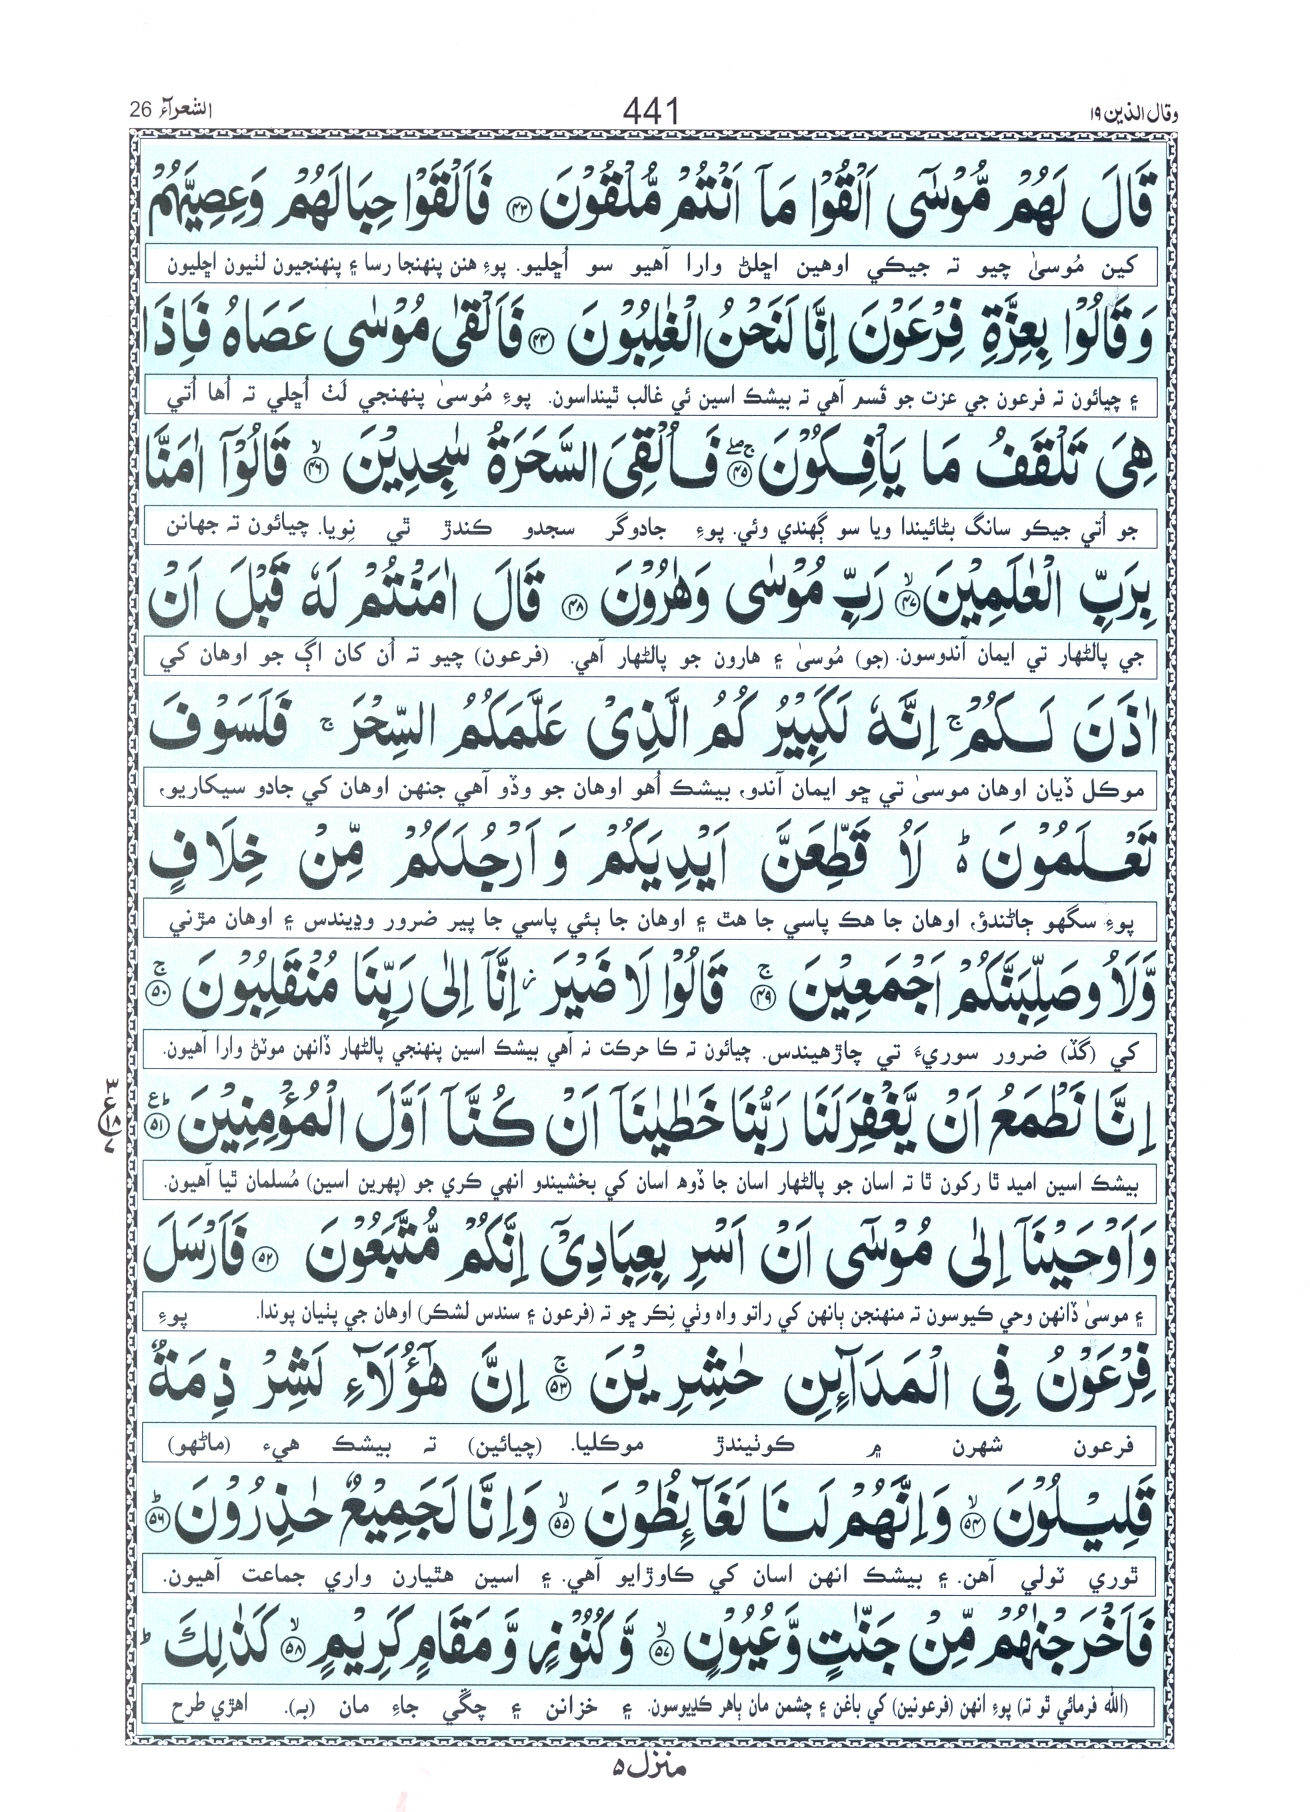 وقال الذين ١٩ 441 الشعرآء 26
قَالَ لَهُمْ مُّوْسٰۤى اَلْقُوْا مَاۤ اَنْتُمْ مُّلْقُوْنَ ﴿۴۳﴾ فَاَلْقَوْا حِبَالَهُمْ وَعِصِيَّهُمْ
کين مُوسىٰ چيو تہ جيڪي اوھين اڇلڻ وارا آھيو سو اُڇليو. پوءِ ھنن پنھنجا رسا ۽ پنھنجيون لٺيون اڇليون
وَقَالُوْا بِعِزَّةِ فِرْعَوْنَ اِنَّا لَنَحْنُ الْغٰلِبُوْنَ ﴿۴۴﴾ فَاَلْقٰى مُوْسٰى عَصَاهُ فَاِذَا
۽ چيائون تہ فرعون جي عزت جو قسم آھي تہ بيشڪ اسين ئي غالب ٿينداسون. پوءِ مُوسىٰ پنھنجي لَٺ اُڇلي تہ اُھا اُتي
هِىَ تَلْقَفُ مَا يَاْفِكُوْنَ ﴿۴۵﴾ۚۖ فَاُلْقِىَ السَّحَرَةُ سٰجِدِيْنَ ﴿۴۶﴾ۙ قَالُوْۤا اٰمَنَّا
جو اُتي جيڪو سانگ بڻائيندا ويا سو ڳھندي وئي. پوءِ جادوگر سجدو ڪندڙ ٿي نِويا. چيائون تہ جھانن
بِرَبِّ الْعٰلَمِيْنَ ﴿۴۷﴾ۙ رَبِّ مُوْسٰى وَهٰرُوْنَ ﴿۴۸﴾ قَالَ اٰمَنْتُمْ لَهٗ قَبْلَ اَنْ
جي پالڻھار تي ايمان آندوسون. (جو) مُوسىٰ ۽ ھارون جو پالڻھار آھي. (فرعون) چيو تہ اُن کان اڳ جو اوھان کي
اٰذَنَ لَكُمْۚ اِنَّهٗ لَكَبِيْرُكُمُ الَّذِىْ عَلَّمَكُمُ السِّحْرَۚ فَلَسَوْفَ
موڪل ڏيان اوھان موسىٰ تي ڇو ايمان آندو، بيشڪ اُھو اوھان جو وڏو آھي جنھن اوھان کي جادو سيکاريو،
تَعْلَمُوْنَ ؕ لَاُقَطِّعَنَّ اَيْدِيَكُمْ وَاَرْجُلَكُمْ مِّنْ خِلَافٍ
پوءِ سگھو ڄاڻندؤ، اوھان جا ھڪ پاسي جا ھٿ ۽ اوھان جا ٻئي پاسي جا پير ضرور وڍيندس ۽ اوھان مڙني
وَّلَاُوصَلِّبَنَّكُمْ اَجْمَعِيْنَ ﴿۴۹﴾ۚ قَالُوْا لَا ضَيْرَ ؗ اِنَّاۤ اِلٰى رَبِّنَا مُنْقَلِبُوْنَ ﴿۵۰﴾ۚ
کي (گڏ) ضرور سوريءَ تي چاڙھيندس. چيائون تہ ڪا حرڪت نہ آھي بيشڪ اسين پنھنجي پالڻھار ڏانھن موٽڻ وارا آھيون.
اِنَّا نَطْمَعُ اَنْ يَّغْفِرَ لَنَا رَبُّنَا خَطٰيٰنَاۤ اَنْ كُنَّاۤ اَوَّلَ الْمُؤْمِنِيْنَ ﴿۵۱﴾ؕ ع
٣ ع ١٨ ٧
بيشڪ اسين اميد ٿا رکون ٿا تہ اسان جو پالڻھار اسان جا ڏوھ اسان کي بخشيندو انھي ڪري جو (پھرين اسين) مُسلمان ٿيا آھيون.
وَاَوْحَيْنَاۤ اِلٰى مُوْسٰۤى اَنْ اَسْرِ بِعِبَادِىْۤ اِنَّكُمْ مُّتَّبَعُوْنَ ﴿۵۲﴾ فَاَرْسَلَ
۽ موسىٰ ڏانھن وحي ڪيوسون تہ منھنجن ٻانھن کي راتو واہ وٺي نِڪر ڇو تہ (فرعون ۽ سندس لشڪر) اوھان جي پٺيان پوندا. پوءِ
فِرْعَوْنُ فِى الْمَدَآئِنِ حٰشِرِيْنَ ﴿۵۳﴾ۚ اِنَّ هٰۤؤُلَاۤءِ لَشِرْذِمَةٌ
فرعون شھرن ۾ ڪوٺيندڙ موڪليا. (چيائين) تہ بيشڪ ھيء (ماڻھو)
قَلِيْلُوْنَ ﴿۵۴﴾ۙ وَاِنَّهُمْ لَنَا لَغَآئِظُوْنَ ﴿۵۵﴾ۙ وَاِنَّا لَجَمِيْعٌ حٰذِرُوْنَ ﴿۵۶﴾ؕ
ٿوري ٽولي آھن. ۽ بيشڪ انھن اسان کي ڪاوڙايو آھي. ۽ اسين ھٿيارن واري جماعت آھيون.
فَاَخْرَجْنٰهُمْ مِّنْ جَنّٰتٍ وَّعُيُوْنٍ ﴿۵۷﴾ۙ وَّكُنُوْزٍ وَّمَقَامٍ كَرِيْمٍ ﴿۵۸﴾ۙ كَذٰلِكَ ؕ
(الله فرمائي ٿو تہ) پوءِ انھن (فرعونين) کي باغن ۽ چشمن مان ٻاھر ڪڍيوسون. ۽ خزانن ۽ چڱي جاءِ مان (بہ). اھڙي طرح
منزل ٥